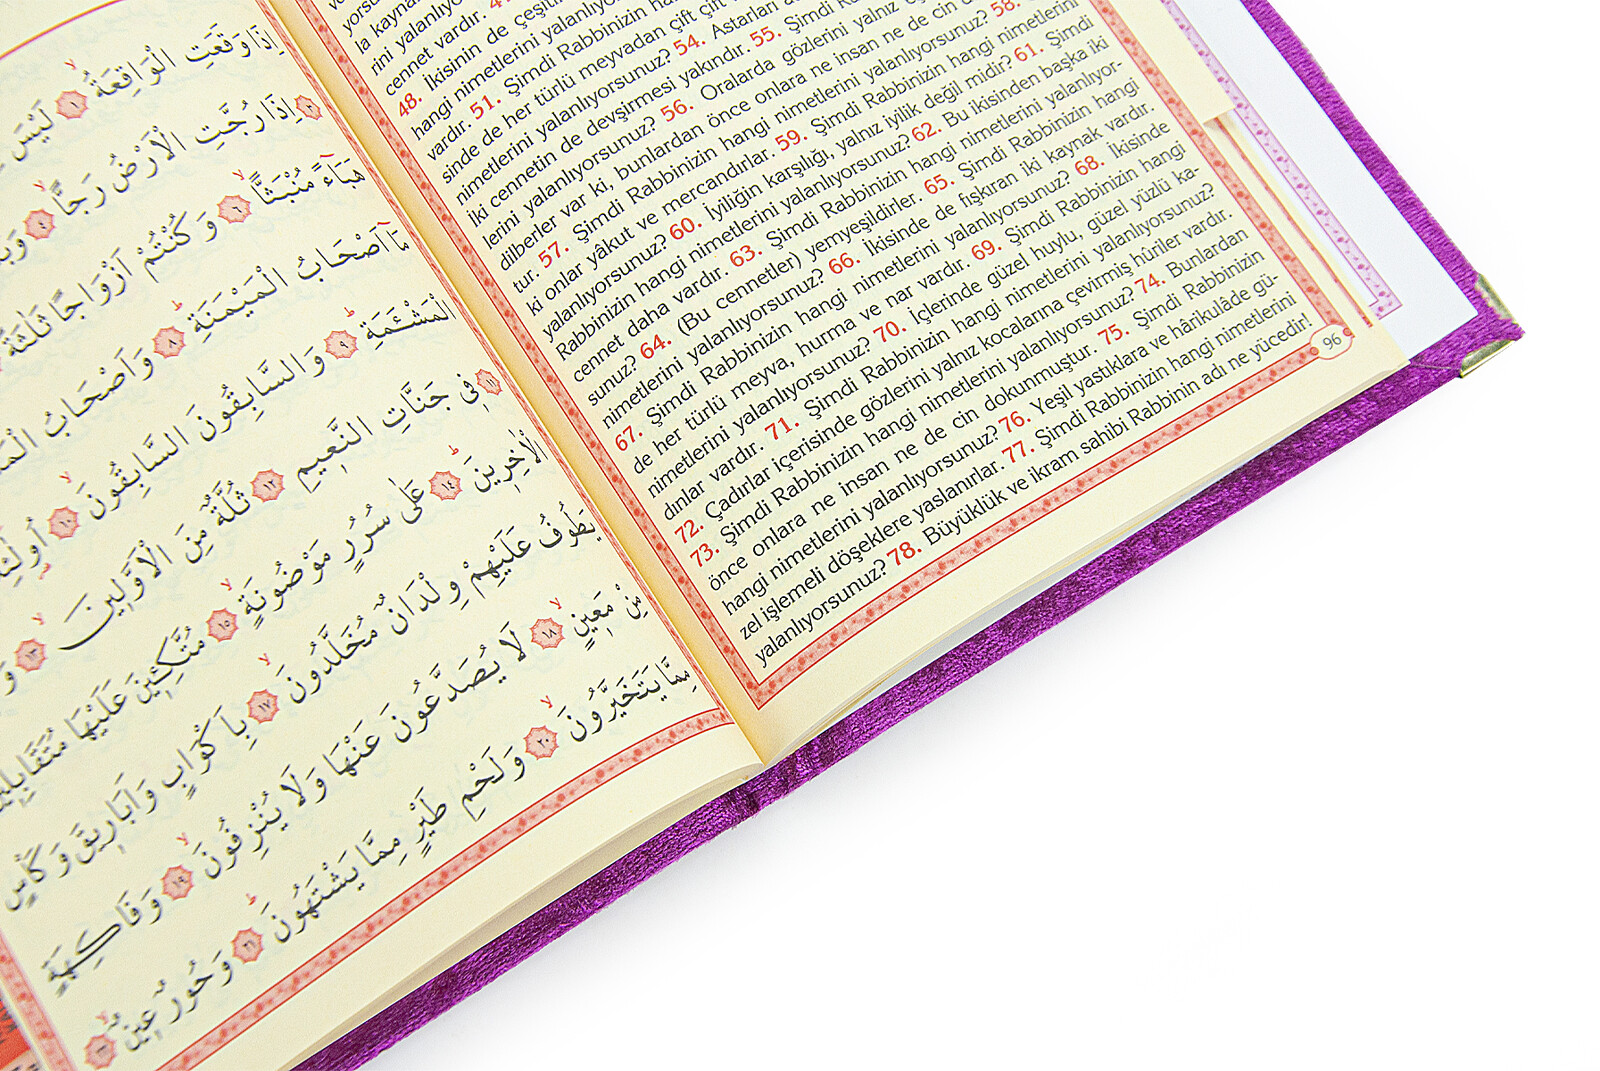 la kaynar
rini yalanlıyorsunuz
cennet vardır.
48. İkisinin de çeşitli
hangi nimetlerini yalanlıyorsunuz
vardır. 51. Şimdi Rabbinizin hangi
sinde de her türlü meyvadan çift çift
nimetlerini yalanlıyorsunuz? 54. Astarları
İki cennetin de devşirmesi yakındır. 55. Şimdi
lerini yalanlıyorsunuz? 56. Oralarda gözlerini yalnız
dilberler var ki, bunlardan önce onlara ne insan ne de cin
tur. 57. Şimdi Rabbinizin hangi nimetlerini yalanlıyorsunuz? 58.
ki onlar yâkut ve mercandırlar. 59. Şimdi Rabbinizin hangi nimetlerini
yalanlıyorsunuz? 60. İyiliğin karşılığı, yalnız iyilik değil midir? 61. Şimdi
Rabbinizin hangi nimetlerini yalanlıyorsunuz? 62. Bu ikisinden başka iki
cennet daha vardır. 63. Şimdi Rabbinizin hangi nimetlerini yalanlıyor-
sunuz? 64. (Bu cennetler) yemyeşildirler. 65. Şimdi Rabbinizin hangi
nimetlerini yalanlıyorsunuz? 66. İkisinde de fışkıran iki kaynak vardır.
67. Şimdi Rabbinizin hangi nimetlerini yalanlıyorsunuz? 68. İkisinde
de her türlü meyva, hurma ve nar vardır. 69. Şimdi Rabbinizin hangi
nimetlerini yalanlıyorsunuz? 70. İçlerinde güzel huylu, güzel yüzlü ka-
dınlar vardır. 71. Şimdi Rabbinizin hangi nimetlerini yalanlıyorsunuz?
72. Çadırlar içerisinde gözlerini yalnız kocalarına çevirmiş hûriler vardır.
73. Şimdi Rabbinizin hangi nimetlerini yalanlıyorsunuz? 74. Bunlardan
önce onlara ne insan ne de cin dokunmuştur. 75. Şimdi Rabbinizin
hangi nimetlerini yalanlıyorsunuz? 76. Yeşil yastıklara ve hârikulâde gü-
zel işlemeli döşeklere yaslanırlar. 77. Şimdi Rabbinizin hangi nimetlerini
yalanlıyorsunuz? 78. Büyüklük ve ikram sahibi Rabbinin adı ne yücedir!
96
اِذَا وَقَعَتِ الْوَاقِعَةُ ﴿١﴾ لَيْسَ
﴿٣﴾ اِذَا رُجَّتِ الْاَرْضُ رَجًّا ﴿٤﴾
هَبَاءً مُنْبَثًّا ﴿٦﴾ وَكُنْتُمْ اَزْوَاجًا ثَلٰثَةً
مَا اَصْحَابُ الْمَيْمَنَةِ ﴿٨﴾ وَاَصْحَابُ
الْمَشْـَٔمَةِ ﴿٩﴾ وَالسَّابِقُونَ السَّابِقُونَ ﴿١٠﴾
﴿١١﴾ فِى جَنَّاتِ النَّعِيمِ ﴿١٢﴾ ثُلَّةٌ مِنَ الْاَوَّلِينَ ﴿١٣﴾
الْاٰخِرِينَ ﴿١٤﴾ عَلٰى سُرُرٍ مَوْضُونَةٍ ﴿١٥﴾ مُتَّكِـِٔينَ عَلَيْهَا مُتَقَابِلِينَ
يَطُوفُ عَلَيْهِمْ وِلْدَانٌ مُخَلَّدُونَ ﴿١٧﴾ بِاَكْوَابٍ وَاَبَارِيقَ وَكَأْسٍ
مِنْ مَعِينٍ ﴿١٨﴾ لَا يُصَدَّعُونَ عَنْهَا وَلَا يُنْزِفُونَ ﴿١٩﴾ وَفَاكِهَةٍ
مِمَّا يَتَخَيَّرُونَ ﴿٢٠﴾ وَلَحْمِ طَيْرٍ مِمَّا يَشْتَهُونَ ﴿٢١﴾ وَحُورٌ عِينٌ ﴿٢٢﴾